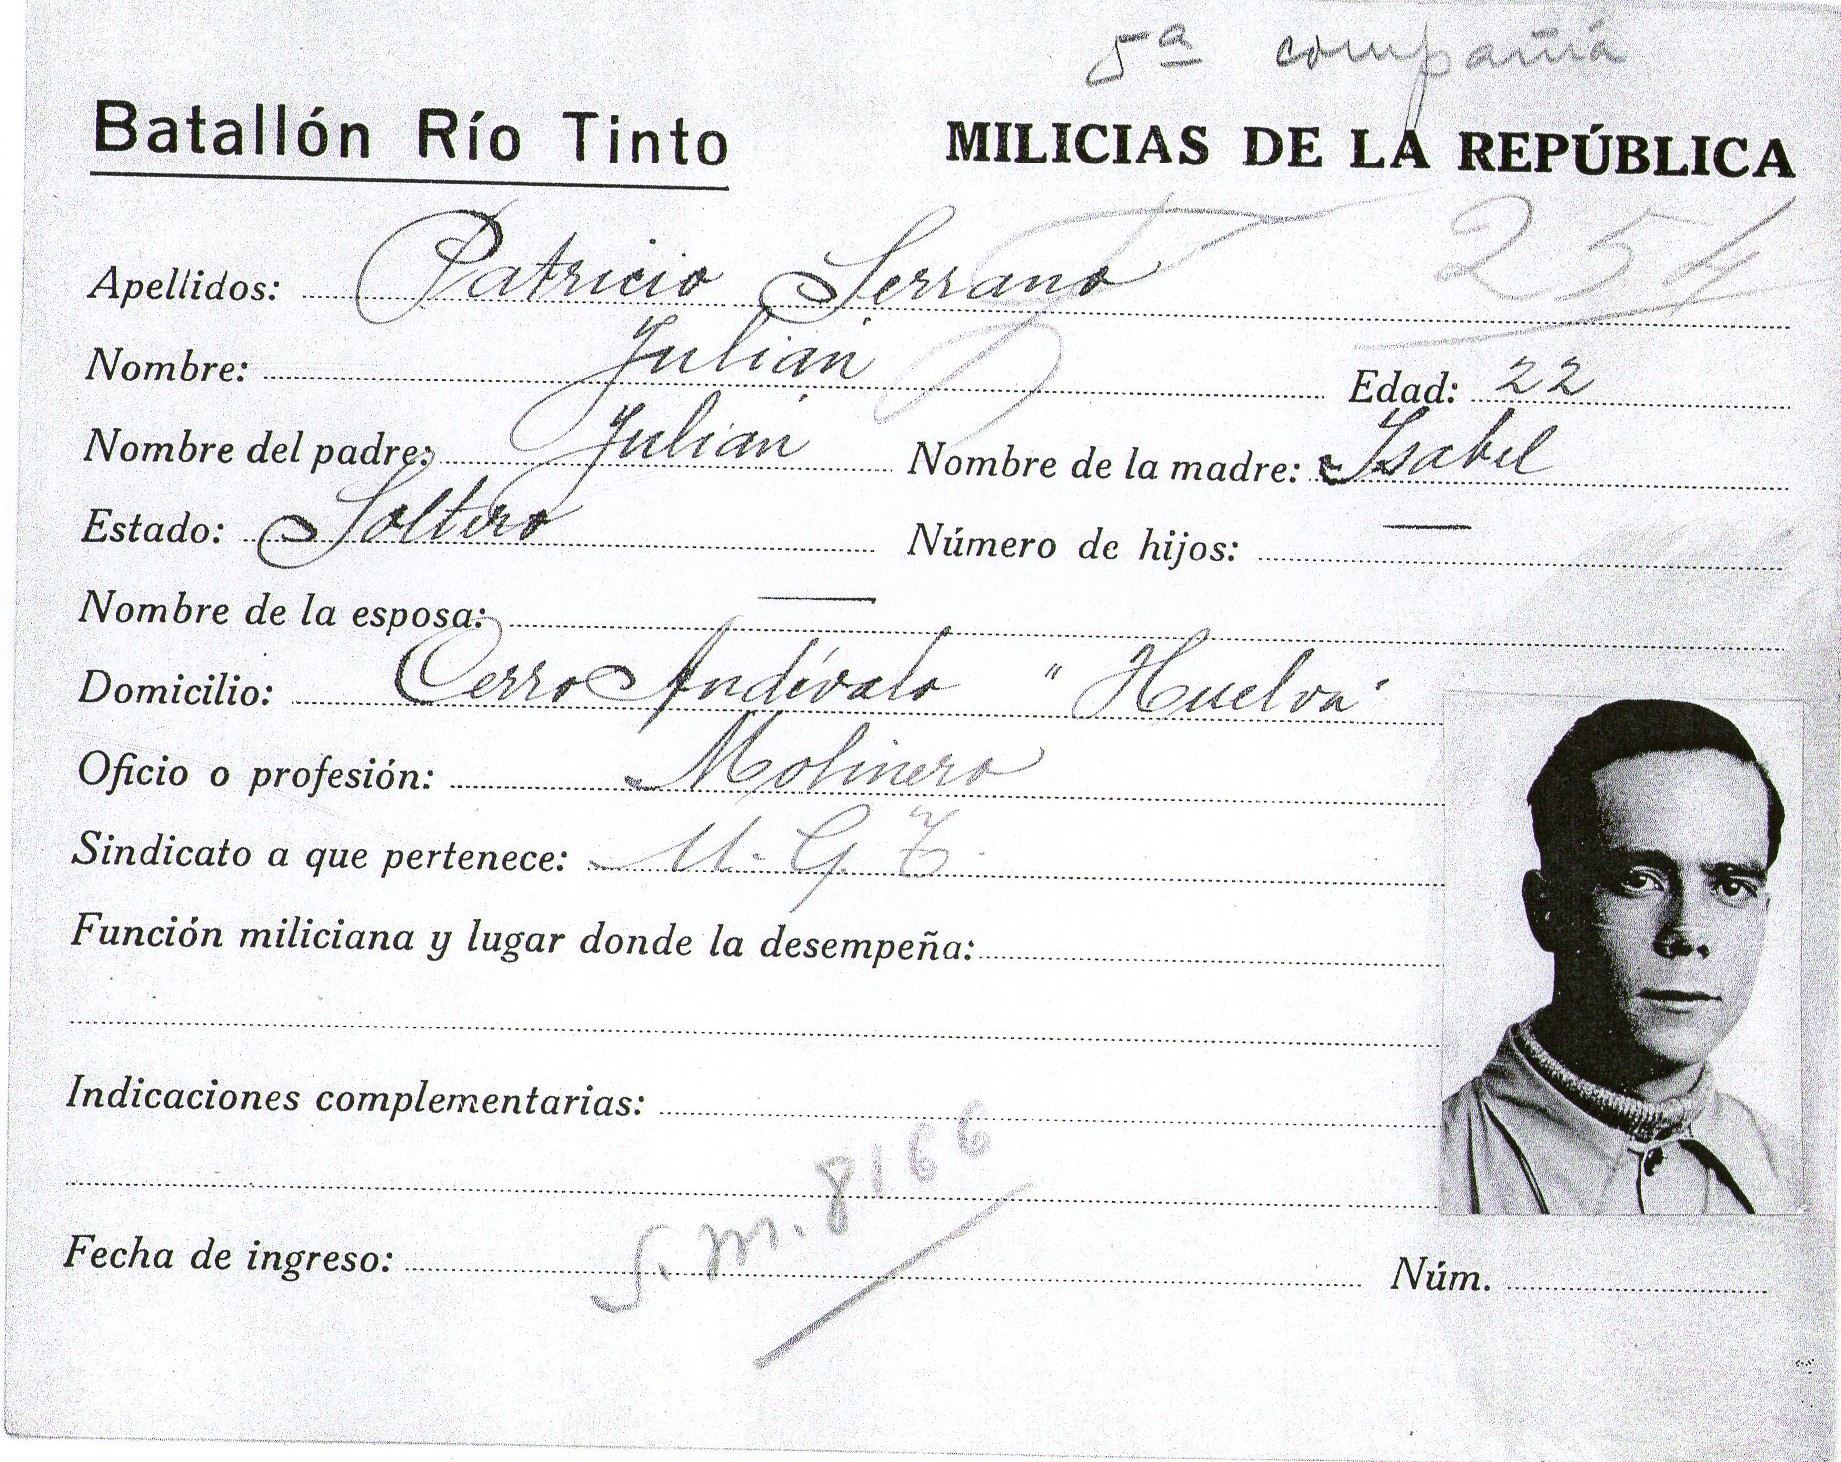 5ª compañia
Batallón Río Tinto MILICIAS DE LA REPÚBLICA
254
Apellidos: Patricio Serrano
Nombre: Julian Edad: 22
Nombre del padre: Julian Nombre de la madre: Isabel
Estado: Soltero Número de hijos: —
Nombre de la esposa: —
Domicilio: Cerro Andívalo "Huelva"
Oficio o profesión: Molinero
Sindicato a que pertenece: U. G. T.
Función miliciana y lugar donde la desempeña:
Indicaciones complementarias:
S. m. 8166
Fecha de ingreso: Núm.